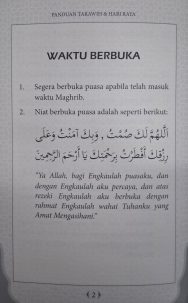 PANDUAN TARAWIH & HARI RAYA
WAKTU BERBUKA
1. Segera berbuka puasa apabila telah masuk
waktu Maghrib.
2. Niat berbuka puasa adalah seperti berikut:
اَللّٰهُمَّ لَكَ صُمْتُ , وَبِكَ آمَنْتُ وَعَلَى
رِزْقِكَ أَفْطَرْتُ بِرَحْمَتِكَ يَا أَرْحَمَ الرَّاحِمِيْنَ
"Ya Allah, bagi Engkaulah puasaku, dan
dengan Engkaulah aku percaya, dan atas
rezeki Engkaulah aku berbuka dengan
rahmat Engkaulah wahai Tuhanku yang
Amat Mengasihani."
2